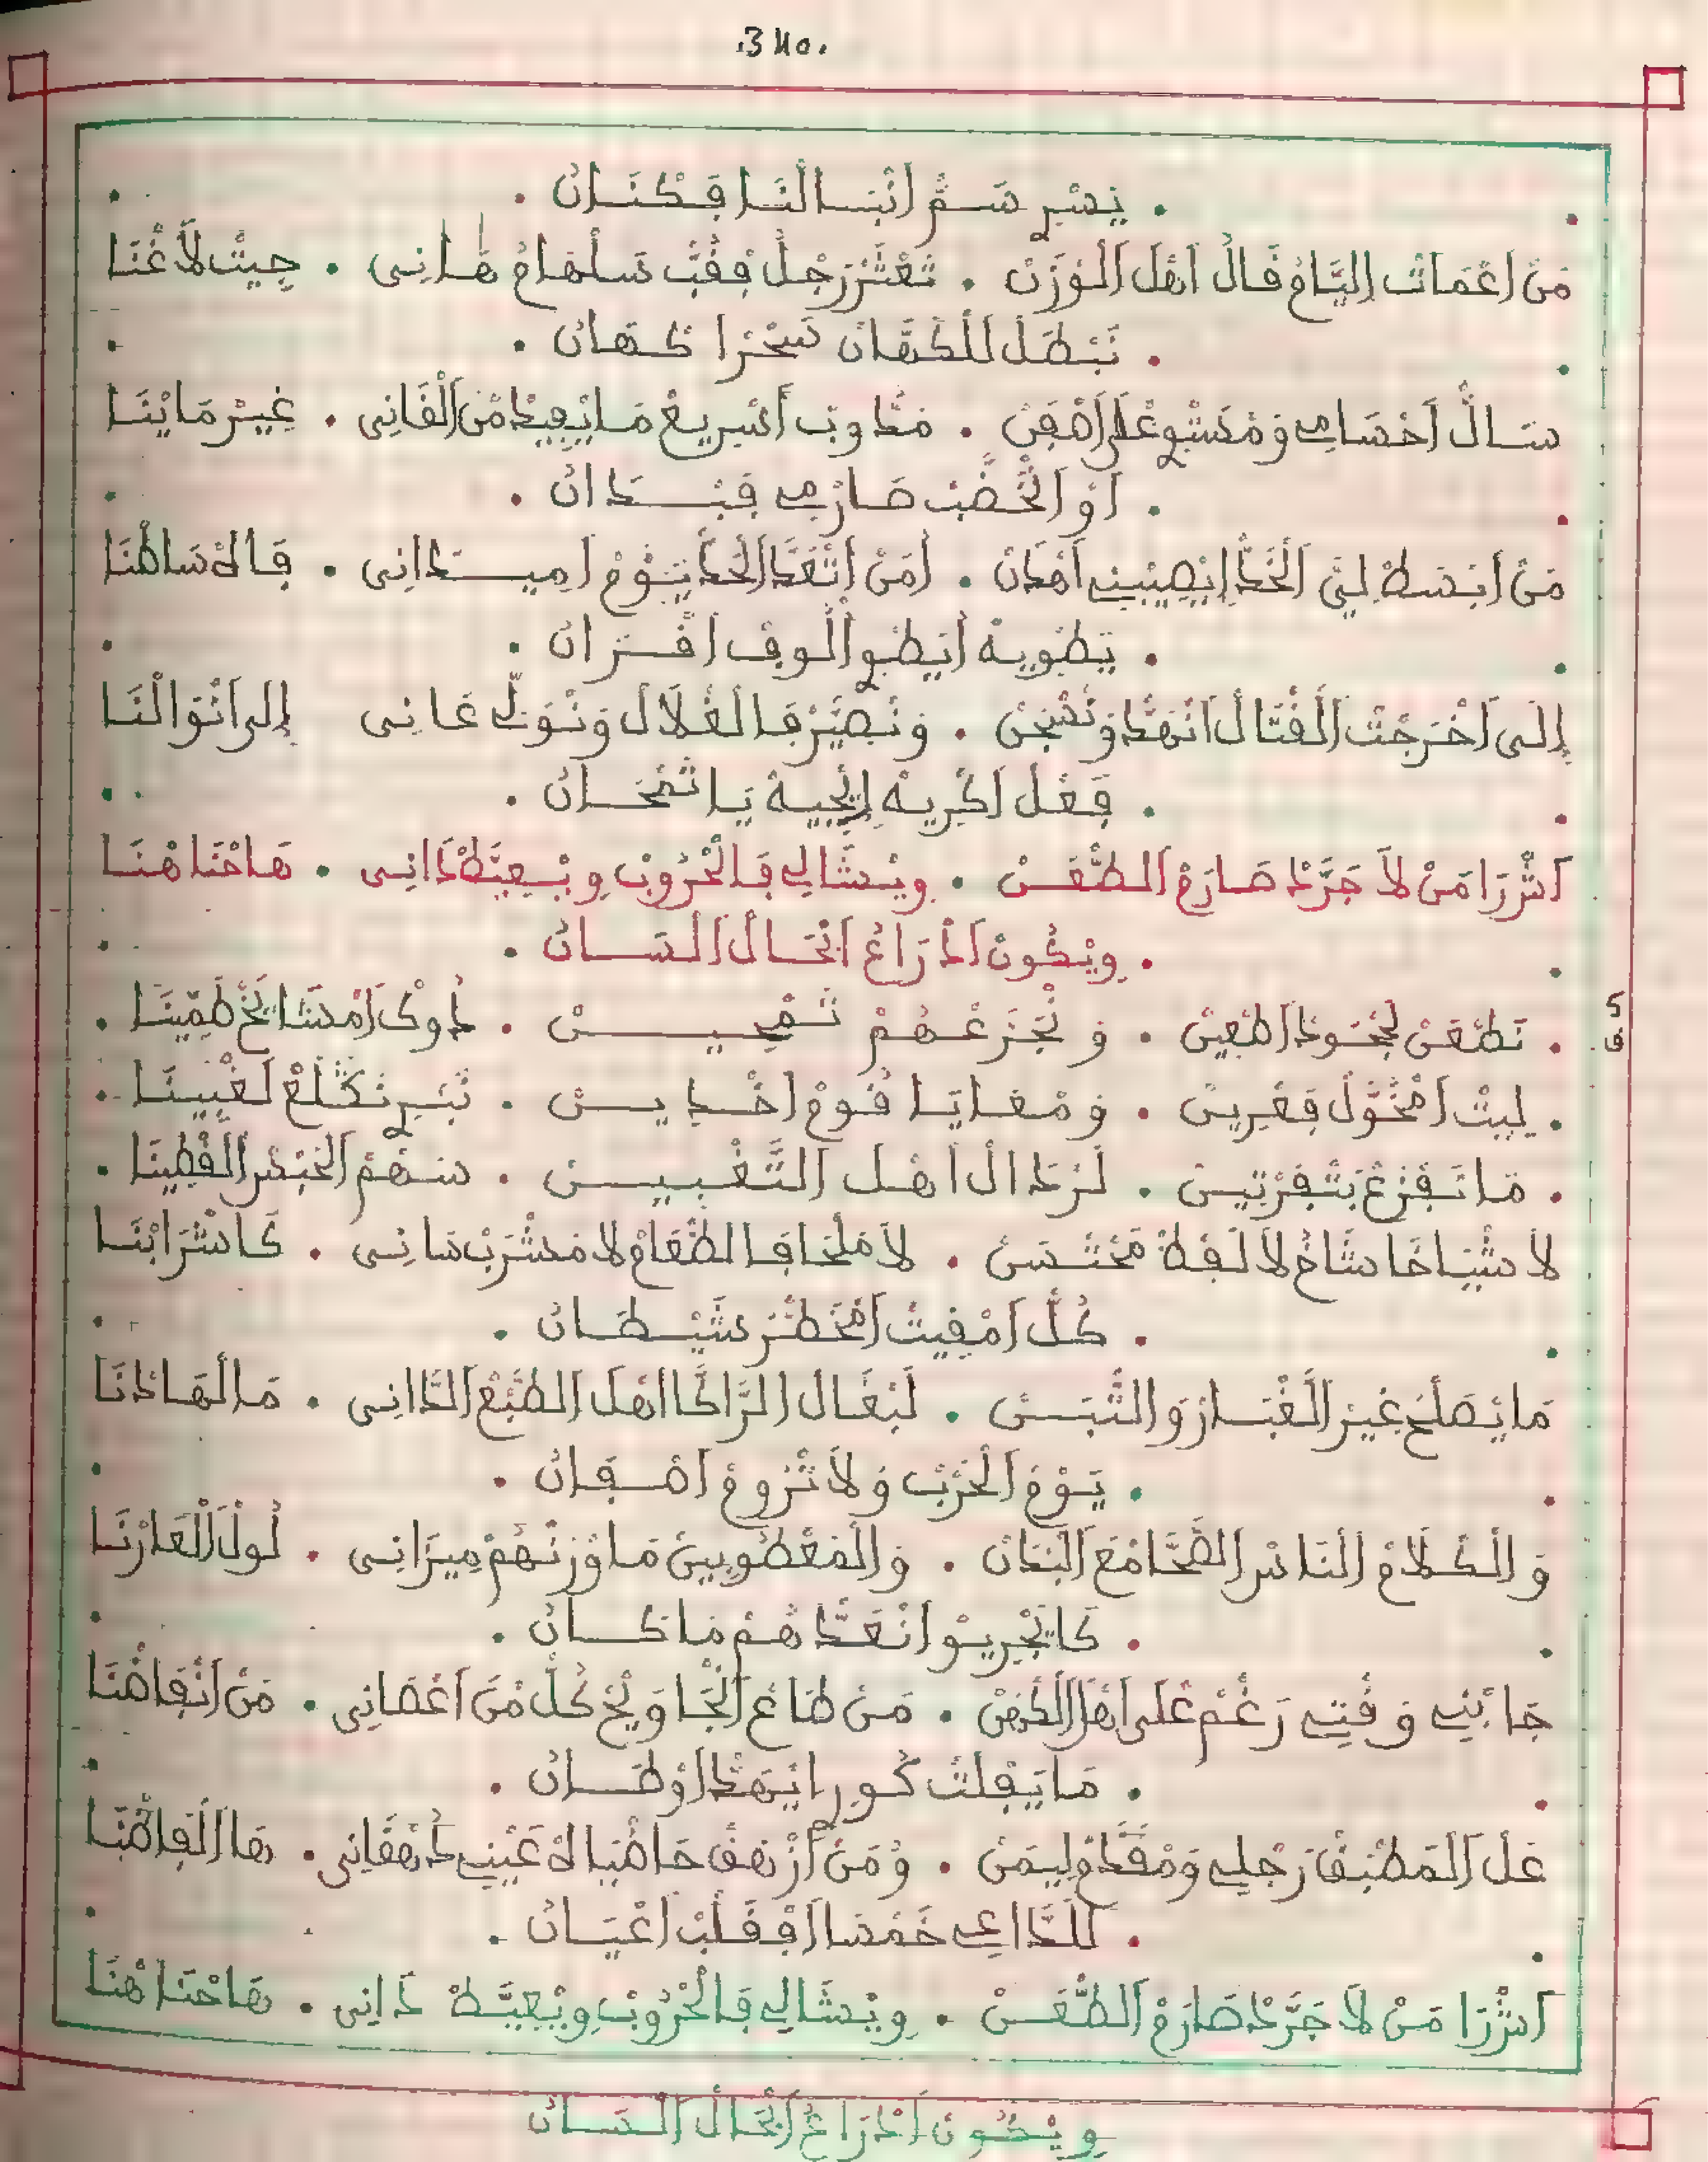 .340.
. يَسْرِ سَمُّ أَنْبَالْنَا فَكْنَانْ .
مَنْ اَعْمَاتْ الِيَّامْ قَالْ اَهْلَ الْوَزَنْ . تَعْثَرْ رَجْلُ فْقُبّ سَلْهَامْ هَانِي . جِيتْ لَاغْنَا
. نَبْطَلْ لَلْكَهَّانْ سَحْرَا كهَانْ .
سَالْ اَحْسَامِي وَمْكَسْبُو عْلَى رَاهْفِنْ . مَڭْدُوبْ اَسْرِيعْ مَايْفِيدْ مْنْ الْفَانِي . غِيرْ مَايْنَا
. اَوْ الْخُضْبْ صَارْمِي فَبْدَانْ .
مَنْ اَبْسَطْ لِيَّ اَلْخَدّْ اِيْصِيبْنِي اَهْدَانْ . اُمَنْ اَتْعَدَّ الْحَدّْ يَوْمْ اَمِيدَانِي . فَالْ سَاطْنَا
. تَطْوِيهْ اَيْطَبْوِ اَلُوفْ اَقْرَانْ .
إِلَى اَخْرَجْتْ اَلْقْتَالْ اَنْهَدّْ وَنْسَجَنْ . وَنْصَيَّرْ فَالْغْلَالْ وَنْوَلِّي غَانِي إلى اَنْوَالْنَا
. فَعْلْ اَكْرِيهْ اِيْجِيهْ يَا شَمْخَانْ .
اَشْرَرَا مَنْ لاَ جَرَّدْ صَارَمْ اَلطَّغَنْ . وِيْشَالِي فَالْحْرُوبْ وِيْعِيَّطْ دَانِي . هَاحْنَا هْنَا
. وِيْكُونْ اَدْرَاعْ اَنْحَالْ اَلسَانْ .
. نَطْعَنْ لَجْحُودْ اَطْعِينْ . وَنْجَزَّعْهُمْ تَمْحِينْ . دُوكْ اَمْشَايَخْ طَمِّينَا .
ق
. لِيتْ اَمْحَوَّلْ فَعْرِينْ . وَمْعَايَا قُومْ اَخْدِينْ . نَبْرِ نَكْلَعْ لَغْبِينَا .
. مَا نَفْزَعْ بَتْفَرْتِينْ . لَرْدَالْ اَهْلْ اَلتَّغْبِينْ . سَهْمْ الْخَبْشْ اَلْفْطِينَا .
لاَ شْيَاخَا شَاخْ لاَ لَفْظْ مَحْتَسَنْ . لاَ مَلْحَا فَالطّْعَامْ لاَ مَشْرَبْ سَانِي . كَا شْرَابْنَا
. كُلّْ اَمْقِيتْ اَمْخَطَّرْ شَيْطَانْ .
مَا يَصْلَحْ غِيرْ اَلَّغْبَارْ وَالتّْبَنْ . لَبْغَالْ الرَّاكَّا اَهْلْ اَلطَّبْعْ اَلدَّانِي . مَا لْهَادْنَا
. يَوْمْ اَلْحَرْبْ وَلاَ تْرُومْ اَهْفَانْ .
وَالْكْلاَمْ اَلنَّاسْ اَلصَّحَّا مْعَ اَلْبْدَانْ . وَالْمَعْطُوبِينْ مَا وْزَنْهُمْ مِيزَانِي . لُولْ اَلْعَارْنَا
. كَا يَجْرِيوْ اَنْعَدّْهُمْ مَاكَانْ .
جَابْنِي وَقْتِي رَغْمْ عْلَى اَهْلْ اَلْكْمَنْ . مَنْ طَاعْ اَنْجَا وَيْحْ كُلّْ مْنْ اَعْصَانِي . مَنْ اَنْفَاضْنَا
. مَا يَفْلَتْ كُورِ اِيْهَدّْ اَوْطَانْ .
عْلْ الْمَطْبَقْ رَجْلِي وَمْقَدّْمْ لِيمَنْ . وُمَنْ اَزْهَقْ حَاضْيَالْ عَيْنِي دْهْقَانِي . هَا اَلْفَاهْنَا
. لَلدَّاعِي خَمْسَا اَفْقَلْبْ اَعْيَانْ .
اَشْرَرَا مَنْ لاَ جَرَّدْ صَارَمْ اَلطَّغَنْ . وِيْشَالِي فَالْحْرُوبْ وِيْعِيَّطْ دَانِي . هَاحْنَا هْنَا
وِيْكُونْ اَدْرَاعْ اَنْحَالْ اَلسَانْ